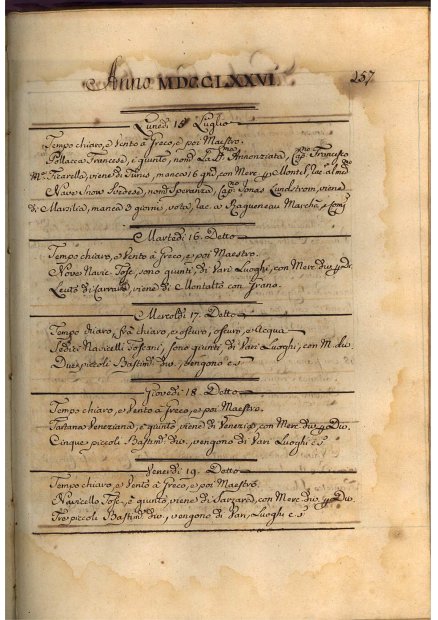 Anno MDCCLXXVI. 257
Lunedì 15 Luglio
Tempo chiaro, e Vento à Greco, e poi Maestro.
Pollacca Francese, è giunto, nom.ta La SS. Annonziata, Cap.no Francesco
Ficarella, viene di Tunis, manca 16 gni, con Merc. p Montel,
Nave Snow Svedese, nom.ta Speranza, Cap.no Jonas Lundstrom, viene
di Marsilia, manca 3 giorni, vota, rac. a Ragueneau March. e Comp.
Martedì 16. Detto
Tempo chiaro, e Vento à Greco, e poi Maestro.
Nove Navic. Tosc., sono giunti, di Vari Luoghi, con Merc. div. p Dr.
Leuto di Carrara, viene di Montalto con Grano.
Mercoldì 17. Detto
Tempo chiaro, frà chiaro, e oscuro, oscuro, e Acqua
Sedici Navicelli Toscani, sono giunti, di Vari Luoghi, con M. div.
Due piccoli Bastim. div., vengono c. s.
Giovedì 18. Detto
Tempo chiaro, e Vento à Greco, e poi Maestro.
Tartana Veneziana, è giunto, viene di Venezia, con Merc. div. p Div.
Cinque piccoli Bastim. div., vengono di Vari Luoghi c. s.
Venerdì 19. Detto
Tempo chiaro, e Vento à Greco, e poi Maestro.
Navicello Tosc., è giunto, viene di Sarzana, con Merc. div. p Div.
Tre piccoli Bastim. div., vengono di Vari Luoghi c. s.